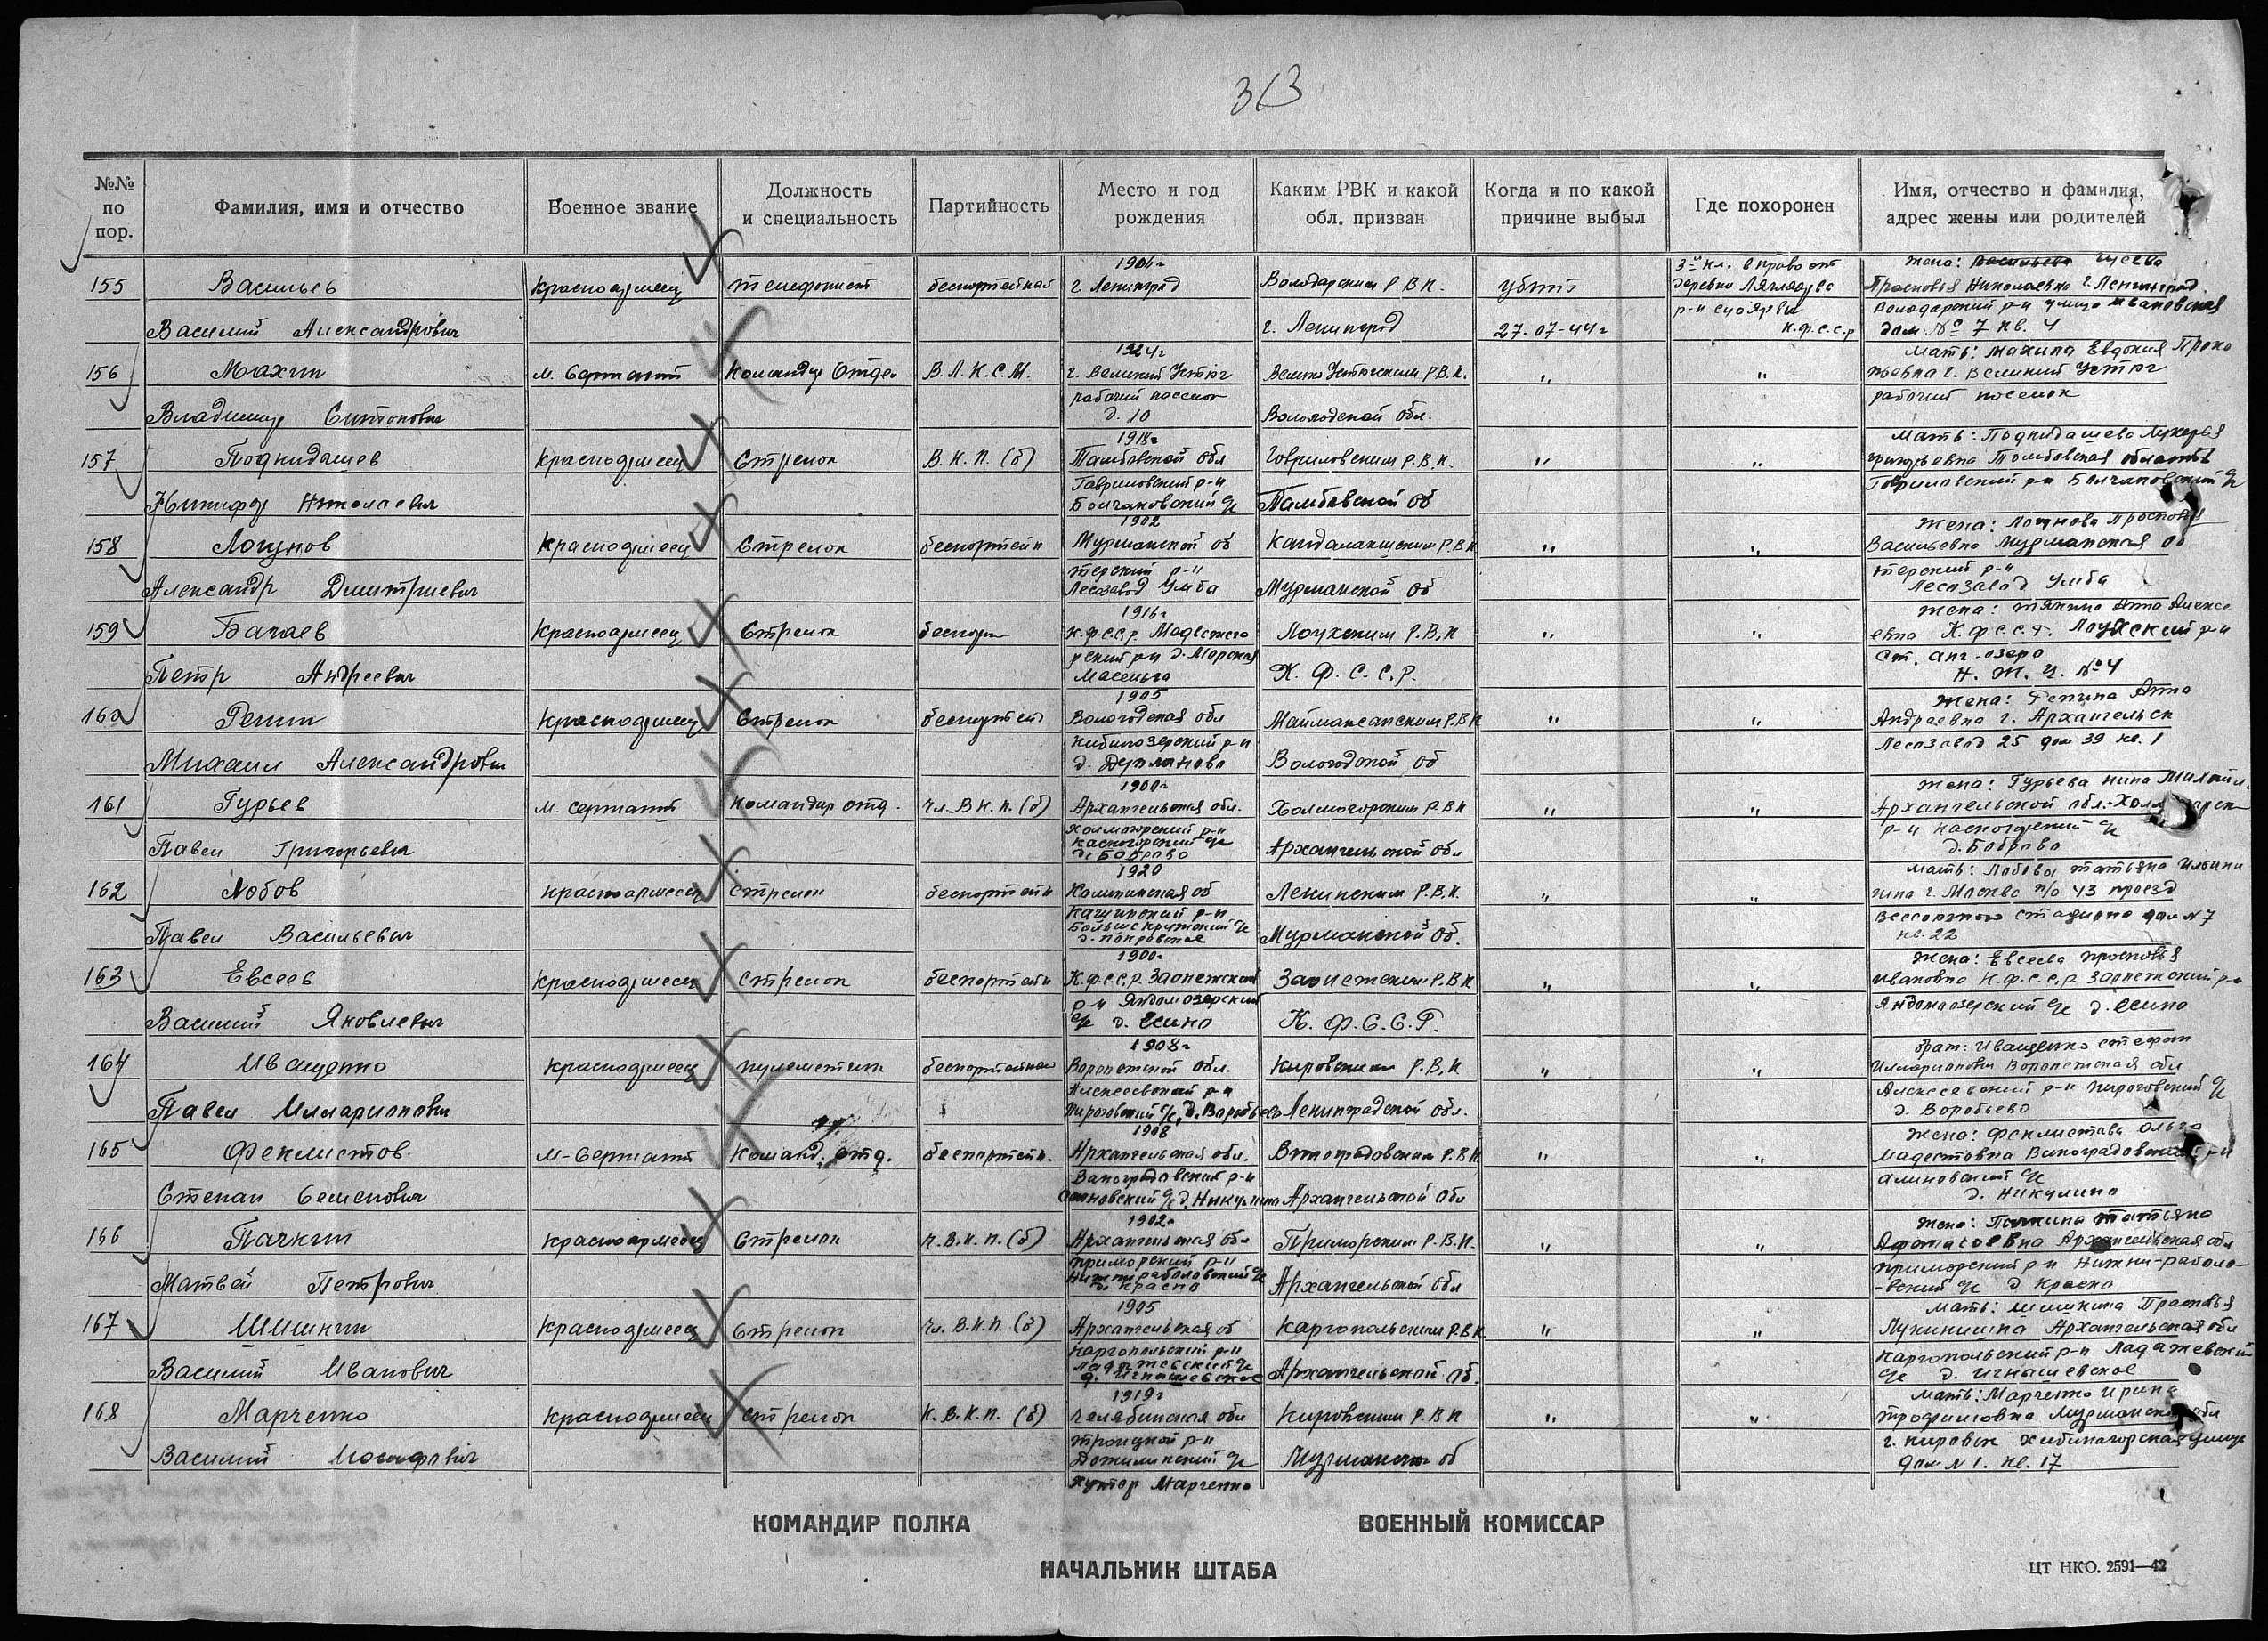 313
№№ по пор.
Фамилия, имя и отчество
Военное звание
Должность и специальность
Партийность
Место и год рождения
Каким РВК и какой обл. призван
Когда и по какой причине выбыл
Где похоронен
Имя, отчество и фамилия, адрес жены или родителей
155 Васильев Василий Александрович
Красноармеец
телефонист
беспартейный
1906г
г. Ленинград
Володарским Р.В.К.
г. Ленинград
убит
27.07-44г
3 кл. вправо от
деревно
К.ф.с.с.р
Жена:
Просковья Николаевна г. Ленинград
Володарский р-н улица Ивановская
дом № 7 кв. 4
156 Махин Владимир
м. Сержант
Командир Отдел
В.Л.К.С.М.
1924г
г. Великий Устюг
рабочий поселок
д. 10
Велико Устюгским Р.В.К.
Вологодской обл.
" "
Мать: Махина Евдокия Проко
пьевна г. Великий Устюг
рабочий поселок
157 Поднидашев Никифор Николаевич
Красноармеец
Стрелок
В.К.П.(б)
1918г
Тамбовской обл
Гавриловский р-н
Болчаковский с/с
Гавриловским Р.В.К.
Тамбовской об
" "
Мать: Поднидашева Лукерья
Тамбовская область
Гавриловский р-н Болчаковский с/с
158 Логунов Александр Дмитриевич
Красноармеец
Стрелок
беспартейн
1902
Мурманской об
Терский р-н
Лесозавод Умба
Кандалакшским Р.В.К
Мурманской об
" "
Жена: Логунова Просковья
Васильевна Мурманская об
терский р-н
Лесозавод Умба
159 Бачаев Петр Андреевич
Красноармеец
Стрелок
1916г
К.ф.с.с.р. Медвежего
рский р-н д. Морская
Масельга
Лоухским Р.В.К
К.Ф.С.С.Р.
" "
Жена: Тяпина Анна Алексе
евна К.ф.с.с.р. Лоухский р-н
ст. анг-озеро
Н.Ж.Ч. № 4
160 Репин Михаил Александрович
Красноармеец
Стрелок
1905
Вологодская обл
Маймаксанским Р.В.К
Вологодской об
" "
Жена: Репина Анна
Андреевна г. Архангельск
Лесозавод 25 дом 39 кв. 1
161 Гурьев Павел Григорьевич
м. сержант
Командир отд.
Чл.В.К.П.(б)
1900г
Архангельская обл.
Холмогорский р-н
д. Боброво
Холмогорским Р.В.К
Архангельской обл
" "
Жена: Гурьева Нина Михайл.
Архангельской обл.
д. Боброво
162 Лобов Павел Васильевич
красноармеец
стрелок
беспартейн
1920
Калининская об
Кашинский р-н
д. Покровское
Ленинским Р.В.К.
Мурманской об.
" "
Мать: Лобова Татьяна Ильини
чна г. Москва п/о 43 проезд
всесоюзного стадиона дом N 7
кв. 22
163 Евсеев Василий Яковлевич
Красноармеец
стрелок
беспартейн
1900г
К.ф.с.с.р. Заонежский
р-н Яндомозерский
с/с д. Есино
Заонежским Р.В.К
К.Ф.С.С.Р.
" "
Жена: Евсеева Просковья
Ивановна К.ф.с.с.р Заонежский р-н
Яндомозерский с/с д. Есино
164 Иващенко Павел Илларионович
Красноармеец
пулеметчик
беспартейный
1908г
Воронежской обл.
Алексеевский р-н
с/с, д. Воробьево
Кировским Р.В.К
Ленинградской обл.
" "
брат: Иващенко Стефан
Илларионович Воронежская обл
Алексеевский р-н
д. Воробьево
165 Феклистов Степан Семенович
М-Сержант
Команд. отд.
беспартейн.
1908
Архангельская обл.
Виноградовский р-н
с/с д. Никулина
Виноградовским Р.В.К.
Архангельской обл
" "
Жена: Феклистова Ольга
Модестовна Виноградовский р-н
с/с
д. Никулино
166 Пачкин Матвей Петрович
Красноармеец
Стрелок
К.В.К.П.(б)
1902г
Архангельская обл
Приморский р-н
д. Красно
Приморским Р.В.К.
Архангельской обл
" "
Жена: Татьяна
Афанасоевна Архангельская обл
Приморский р-н Нижни-раболо-
-вский с/с д. Красно
167 Шишкин Василий Иванович
Красноармеец
Стрелок
Чл.В.К.П.(б)
1905
Архангельская об
Каргопольский р-н
Каргопольским Р.В.К
Архангельской об.
" "
Мать: Шишкина Прасковья
Лукинишна Архангельская обл
Каргопольский р-н
168 Марченко Василий Иосифович
Красноармеец
стрелок
К.В.К.П.(б)
1919г
Челябинская обл
Троицкой р-н
хутор Марченко
Кировским Р.В.К
Мурманской об
" "
Мать: Марченко Ирина
Трофимовна Мурманской обл
г. Кировск Хибиногорская улица
Дом N 1. кв. 17
КОМАНДИР ПОЛКА
ВОЕННЫЙ КОМИССАР
НАЧАЛЬНИК ШТАБА
ЦТ НКО. 2591—42